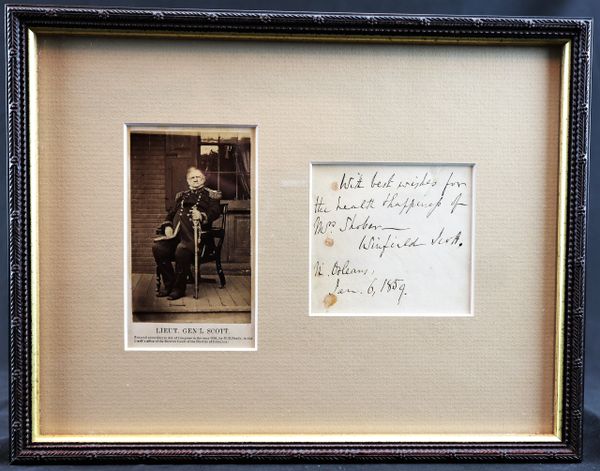 LIEUT. GEN'L SCOTT.
Entered according to Act of Congress in the year 1861, by M. B. Brady, in the
Clerk's office of the District Court of the District of Columbia.
With best wishes for
the health & happiness of
Mrs. Shober—
Winfield Scott.
N. Orleans,
Jan. 6, 1859.